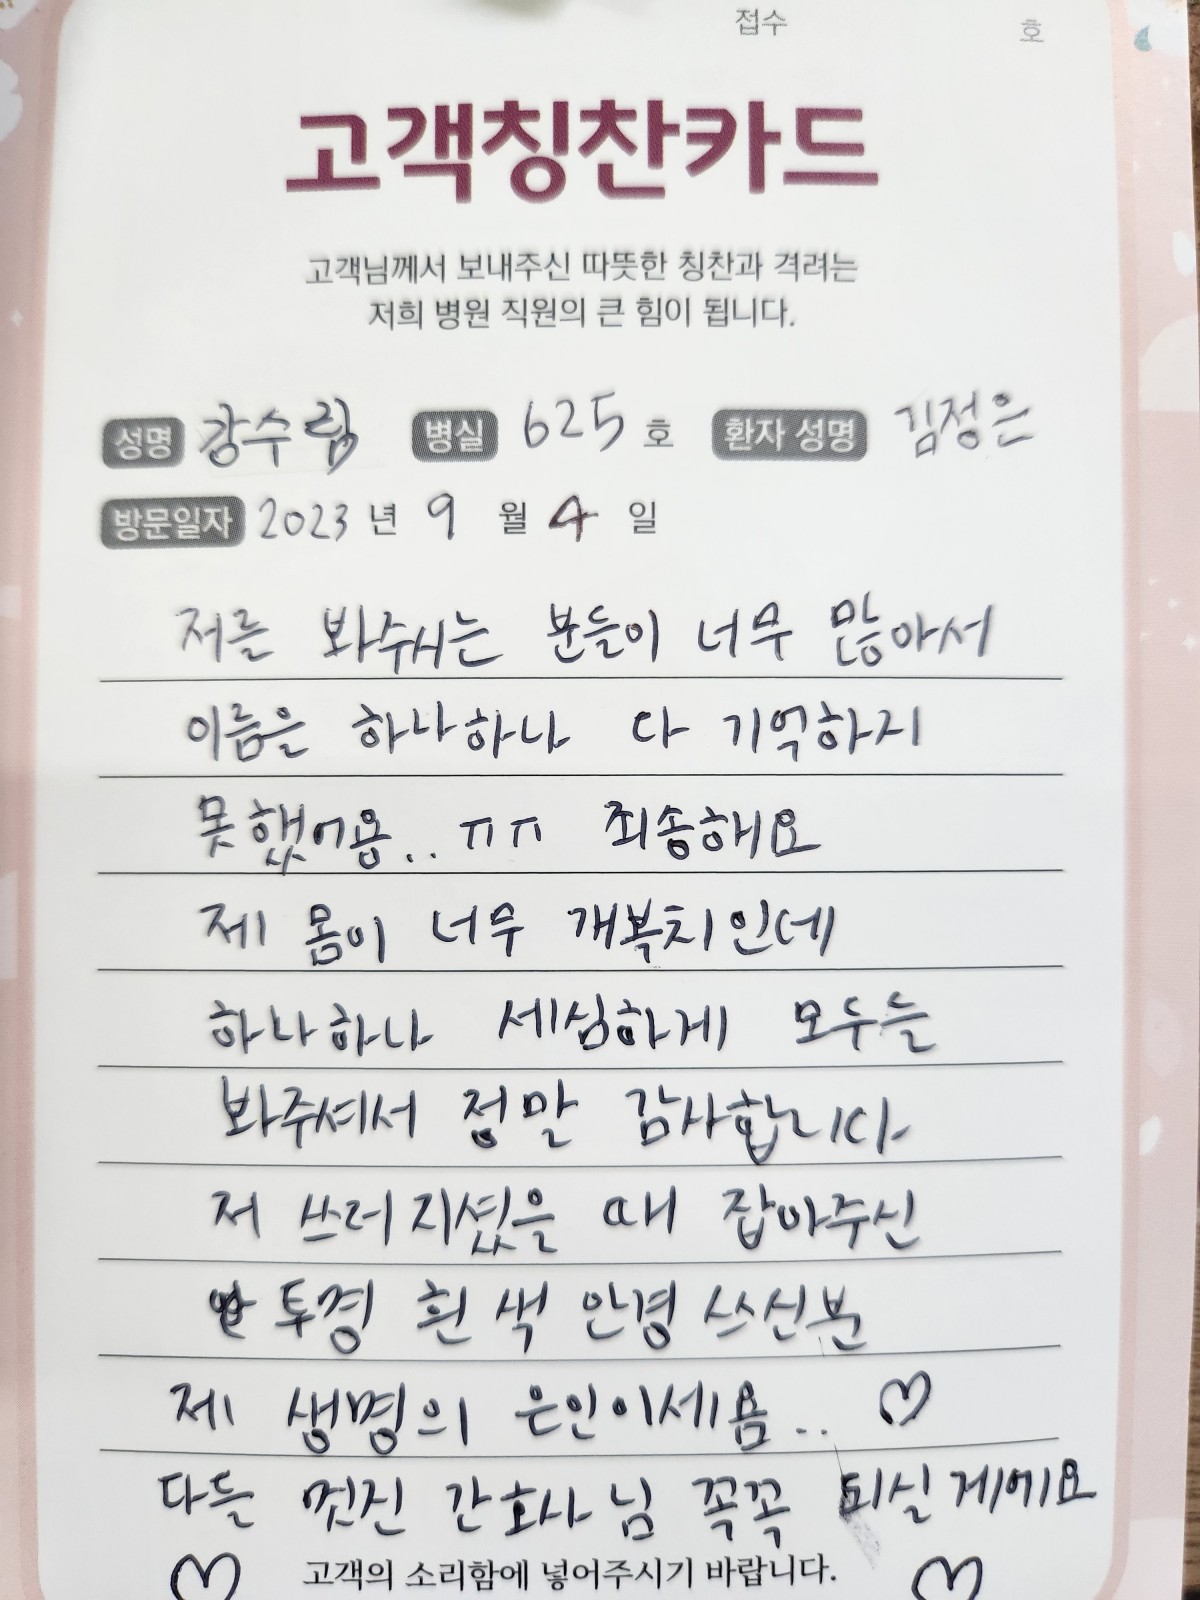 접수 호
고객칭찬카드
고객님께서 보내주신 따뜻한 칭찬과 격려는
저희 병원 직원의 큰 힘이 됩니다.
성명 강수림 병실 625 호 환자 성명 김정은
방문일자 2023 년 9 월 4 일
저를 봐주시는 분들이 너무 많아서
이름은 하나하나 다 기억하지
못했어용.. ㅠㅠ 죄송해요
제 몸이 너무 개복치인데
하나하나 세심하게 모두들
봐주셔서 정말 감사합니다
저 쓰러지셨을 때 잡아주신
투명 흰색 안경 쓰신분
제 생명의 은인이세욤.. ♡
다들 멋진 간호사님 꼭꼭 되실게에요
♡ 고객의 소리함에 넣어주시기 바랍니다. ♡